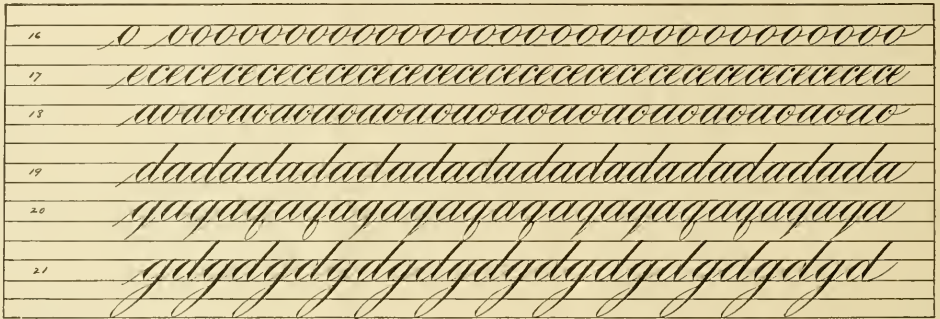 16 o ooooooooooooooooooooooooooooooo
17 ececececececececececececececececececece
18 aoaoaoaoaoaoaoaoaoaoaoaoaoaoaoao
19 dadadadadadadadadadadadadada
20 qaqaqaqaqaqaqaqaqaqaqaqaqaqa
21 gdgdgdgdgdgdgdgdgdgdgd